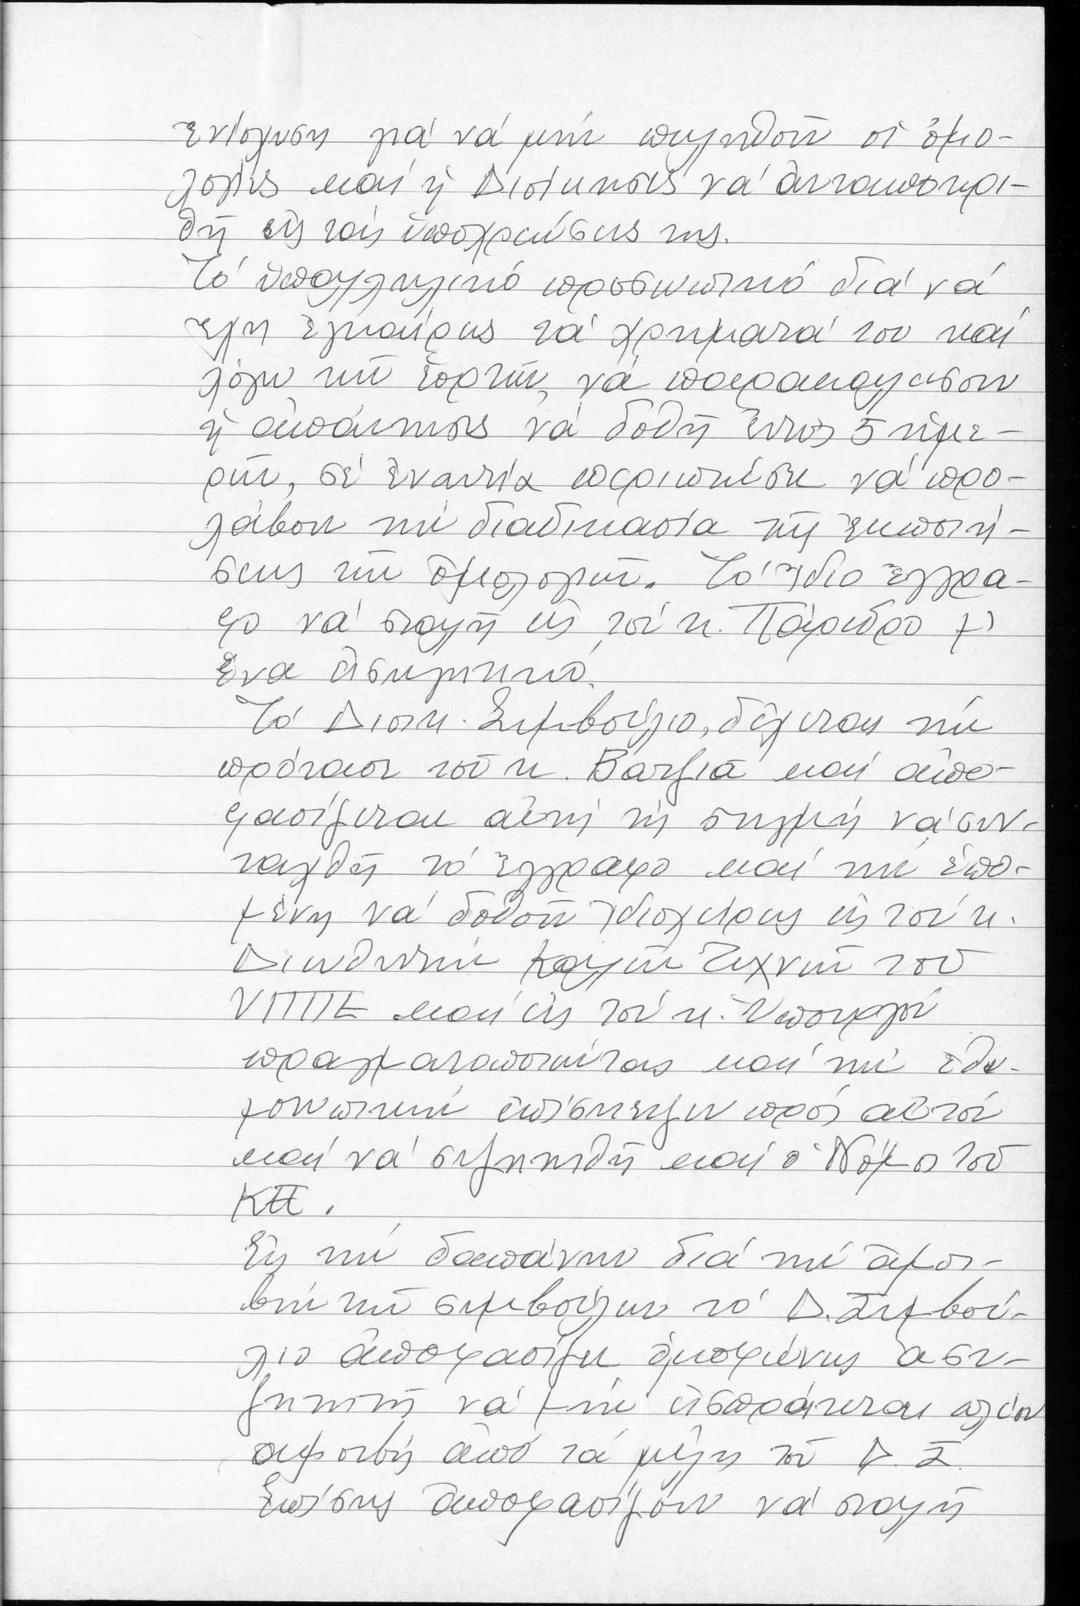 ἐνίσχυση γιά νά μήν πωληθοῦν οἱ ὁμο-
λογίες καί ἡ Διοίκησις νά ἀνταποκρι-
θῇ εἰς τάς ὑποχρεώσεις της.
Τό ὑπαλληλικό προσωπικό διά νά
ἔχη ἐγκαίρως τά χρήματά του καί
λόγω τῶν ἑορτῶν, νά παρακαλέσουν
ἡ ἀπάντησις νά δοθῇ ἐντός 5 ἡμε-
ρῶν, σέ ἐναντία περιπτώσει νά προ-
λάβουν τήν διαδικασία τῆς ἐκποιή-
σεως τῶν ὁμολογιῶν. Τό ἴδιο ἔγγρα-
φο νά σταλῇ εἰς τόν κ. Πάρεδρο μέ
ἕνα εἰσηγητικό.
Τό Διοικ. Συμβούλιο, δέχεται τήν
πρότασι τοῦ κ. Βατζιᾶ καί ἀπο-
φασίζεται αὐτή τή στιγμή νά συν-
ταχθῇ τό ἔγγραφο καί τήν ἑπο-
μένη νά δοθοῦν ἰδιοχείρως εἰς τόν κ.
Διευθυντήν Καλῶν Τεχνῶν τοῦ
ΥΠΠΕ καί εἰς τόν κ. Ὑπουργόν
πραγματοποιῶντας καί τήν ἐθι-
μοτυπικήν ἐπίσκεψιν πρός αὐτόν
καί νά συζητηθῇ καί ὁ Νόμος τοῦ
ΚΠ.
Εἰς τήν δαπάνην διά τήν ἀμοι-
βήν τῶν συμβούλων τό Δ. Συμβού-
λιο ἀποφασίζει ὁμοφώνως ἀσυ-
ζητητί νά μήν εἰσπράττεται πλέον
ἀμοιβή ἀπό τά μέλη τοῦ Δ.Σ.
Ἐπίσης ἀποφασίζουν νά σταλῇ